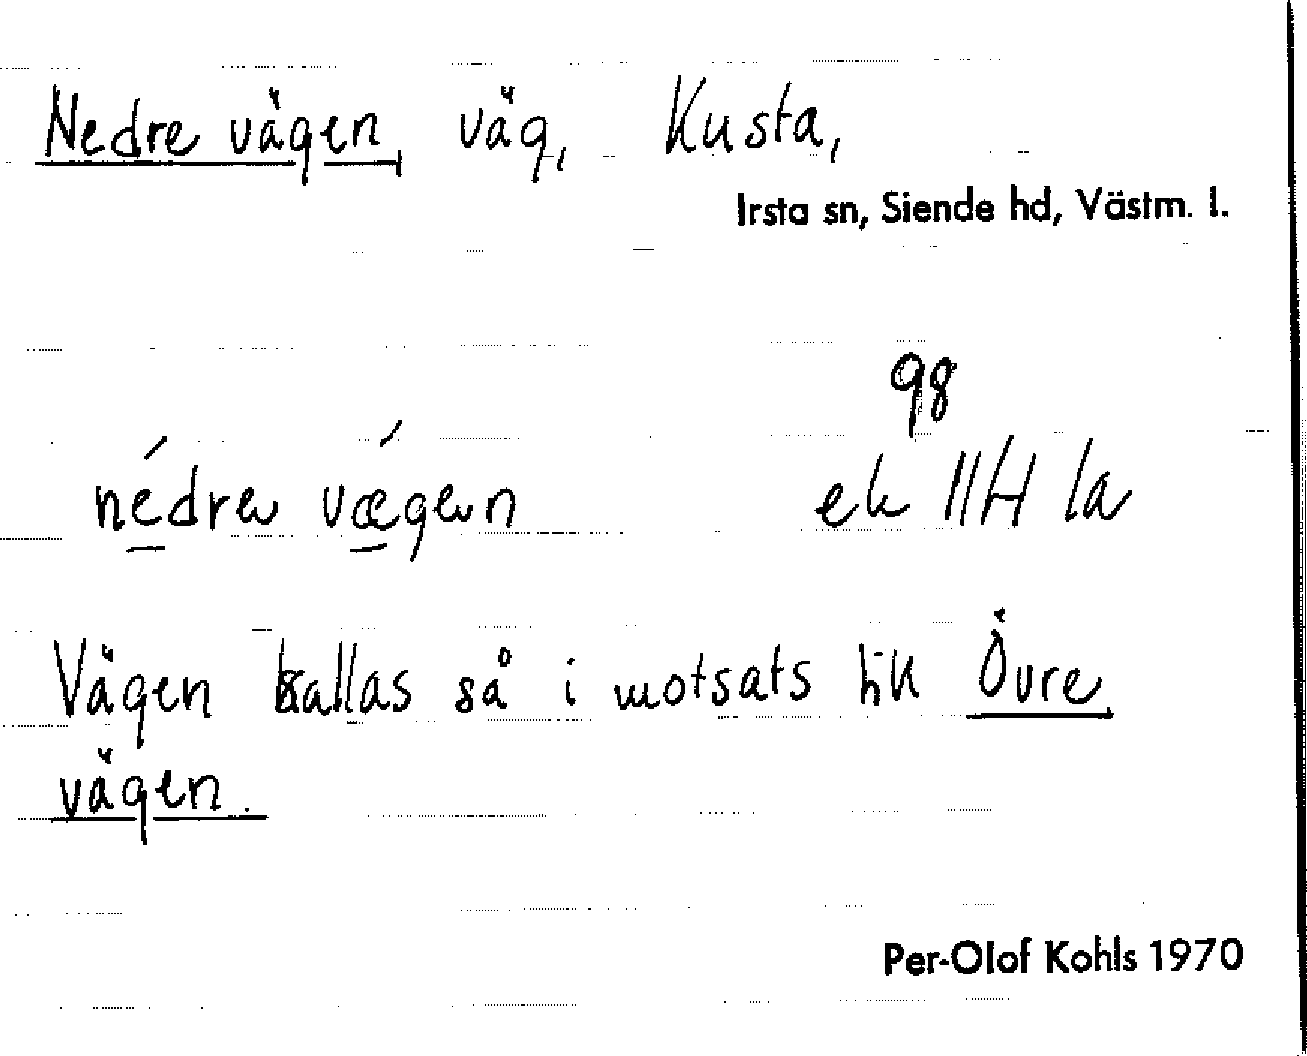 Nedre vägen, väg, Kusta,
Irsta sn, Siende hd, Västm. l.
98
nédrə vǽ̱gən ek 11H 1a
Vägen kallas så i motsats till Övre
vägen.
Per-Olof Kohls 1970